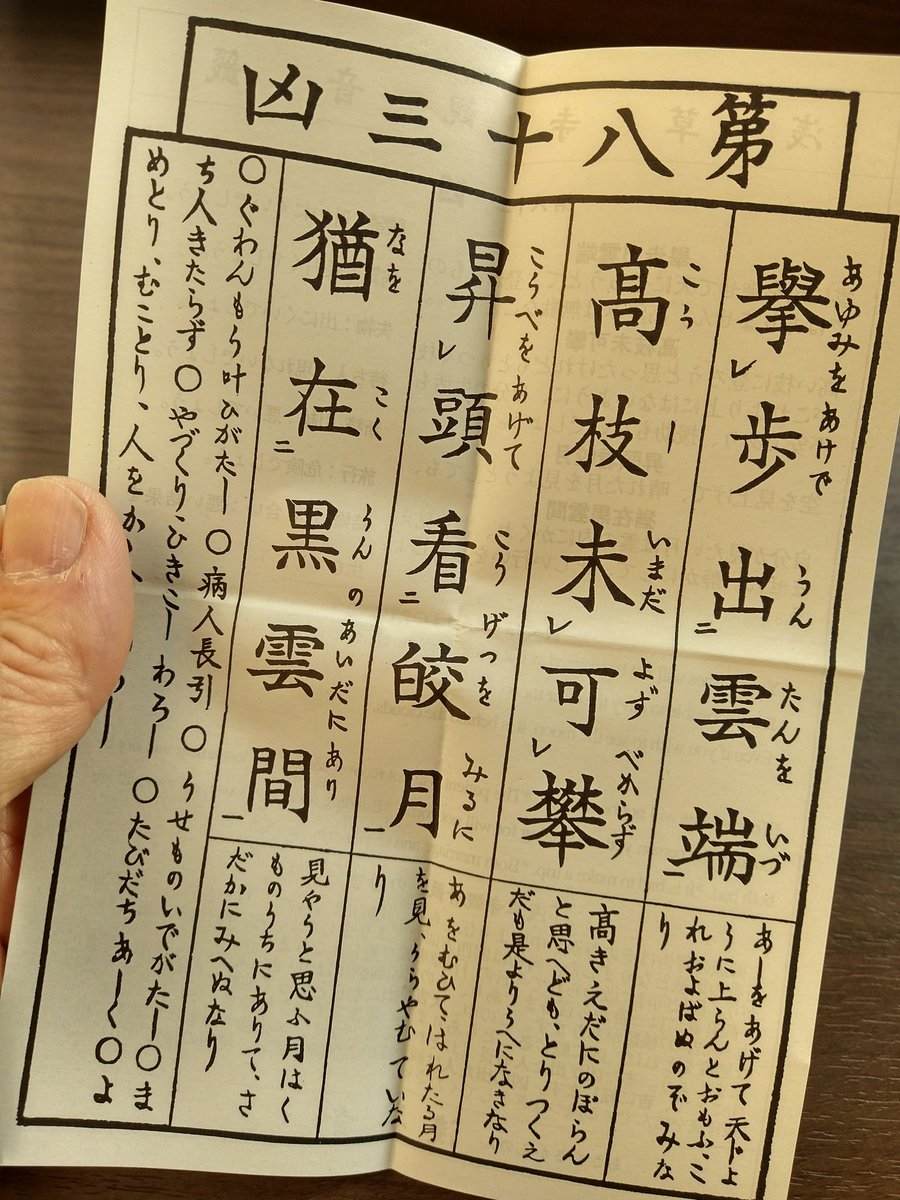 第八十三凶
擧レ歩出二雲端一
あゆみをあけで うん たんを いづ
あしをあげて天じよ
うに上らんとおもふ、こ
れおよばぬのぞみな
り
高枝未レ可レ攀
こう しいまだ よず べからず
高きえだにのぼらん
と思へども、とりつくえ
だも是よりうへになきなり
昇レ頭看二皎月一
こうべをあげて こう げつを みるに
あをむひて、はれたる月
を見、うらやむていな
り
猶在二黒雲間一
なを こく うんのあいだにあり
見やうと思ふ月はく
ものうちにありて、さ
だかにみへぬなり
○ぐわんもう叶ひがたし○病人長引○うせものいでがたし○ま
ち人きたらず○やづくり、ひきこしわろし○たびだちあしく○よ
めとり、むことり、人をか